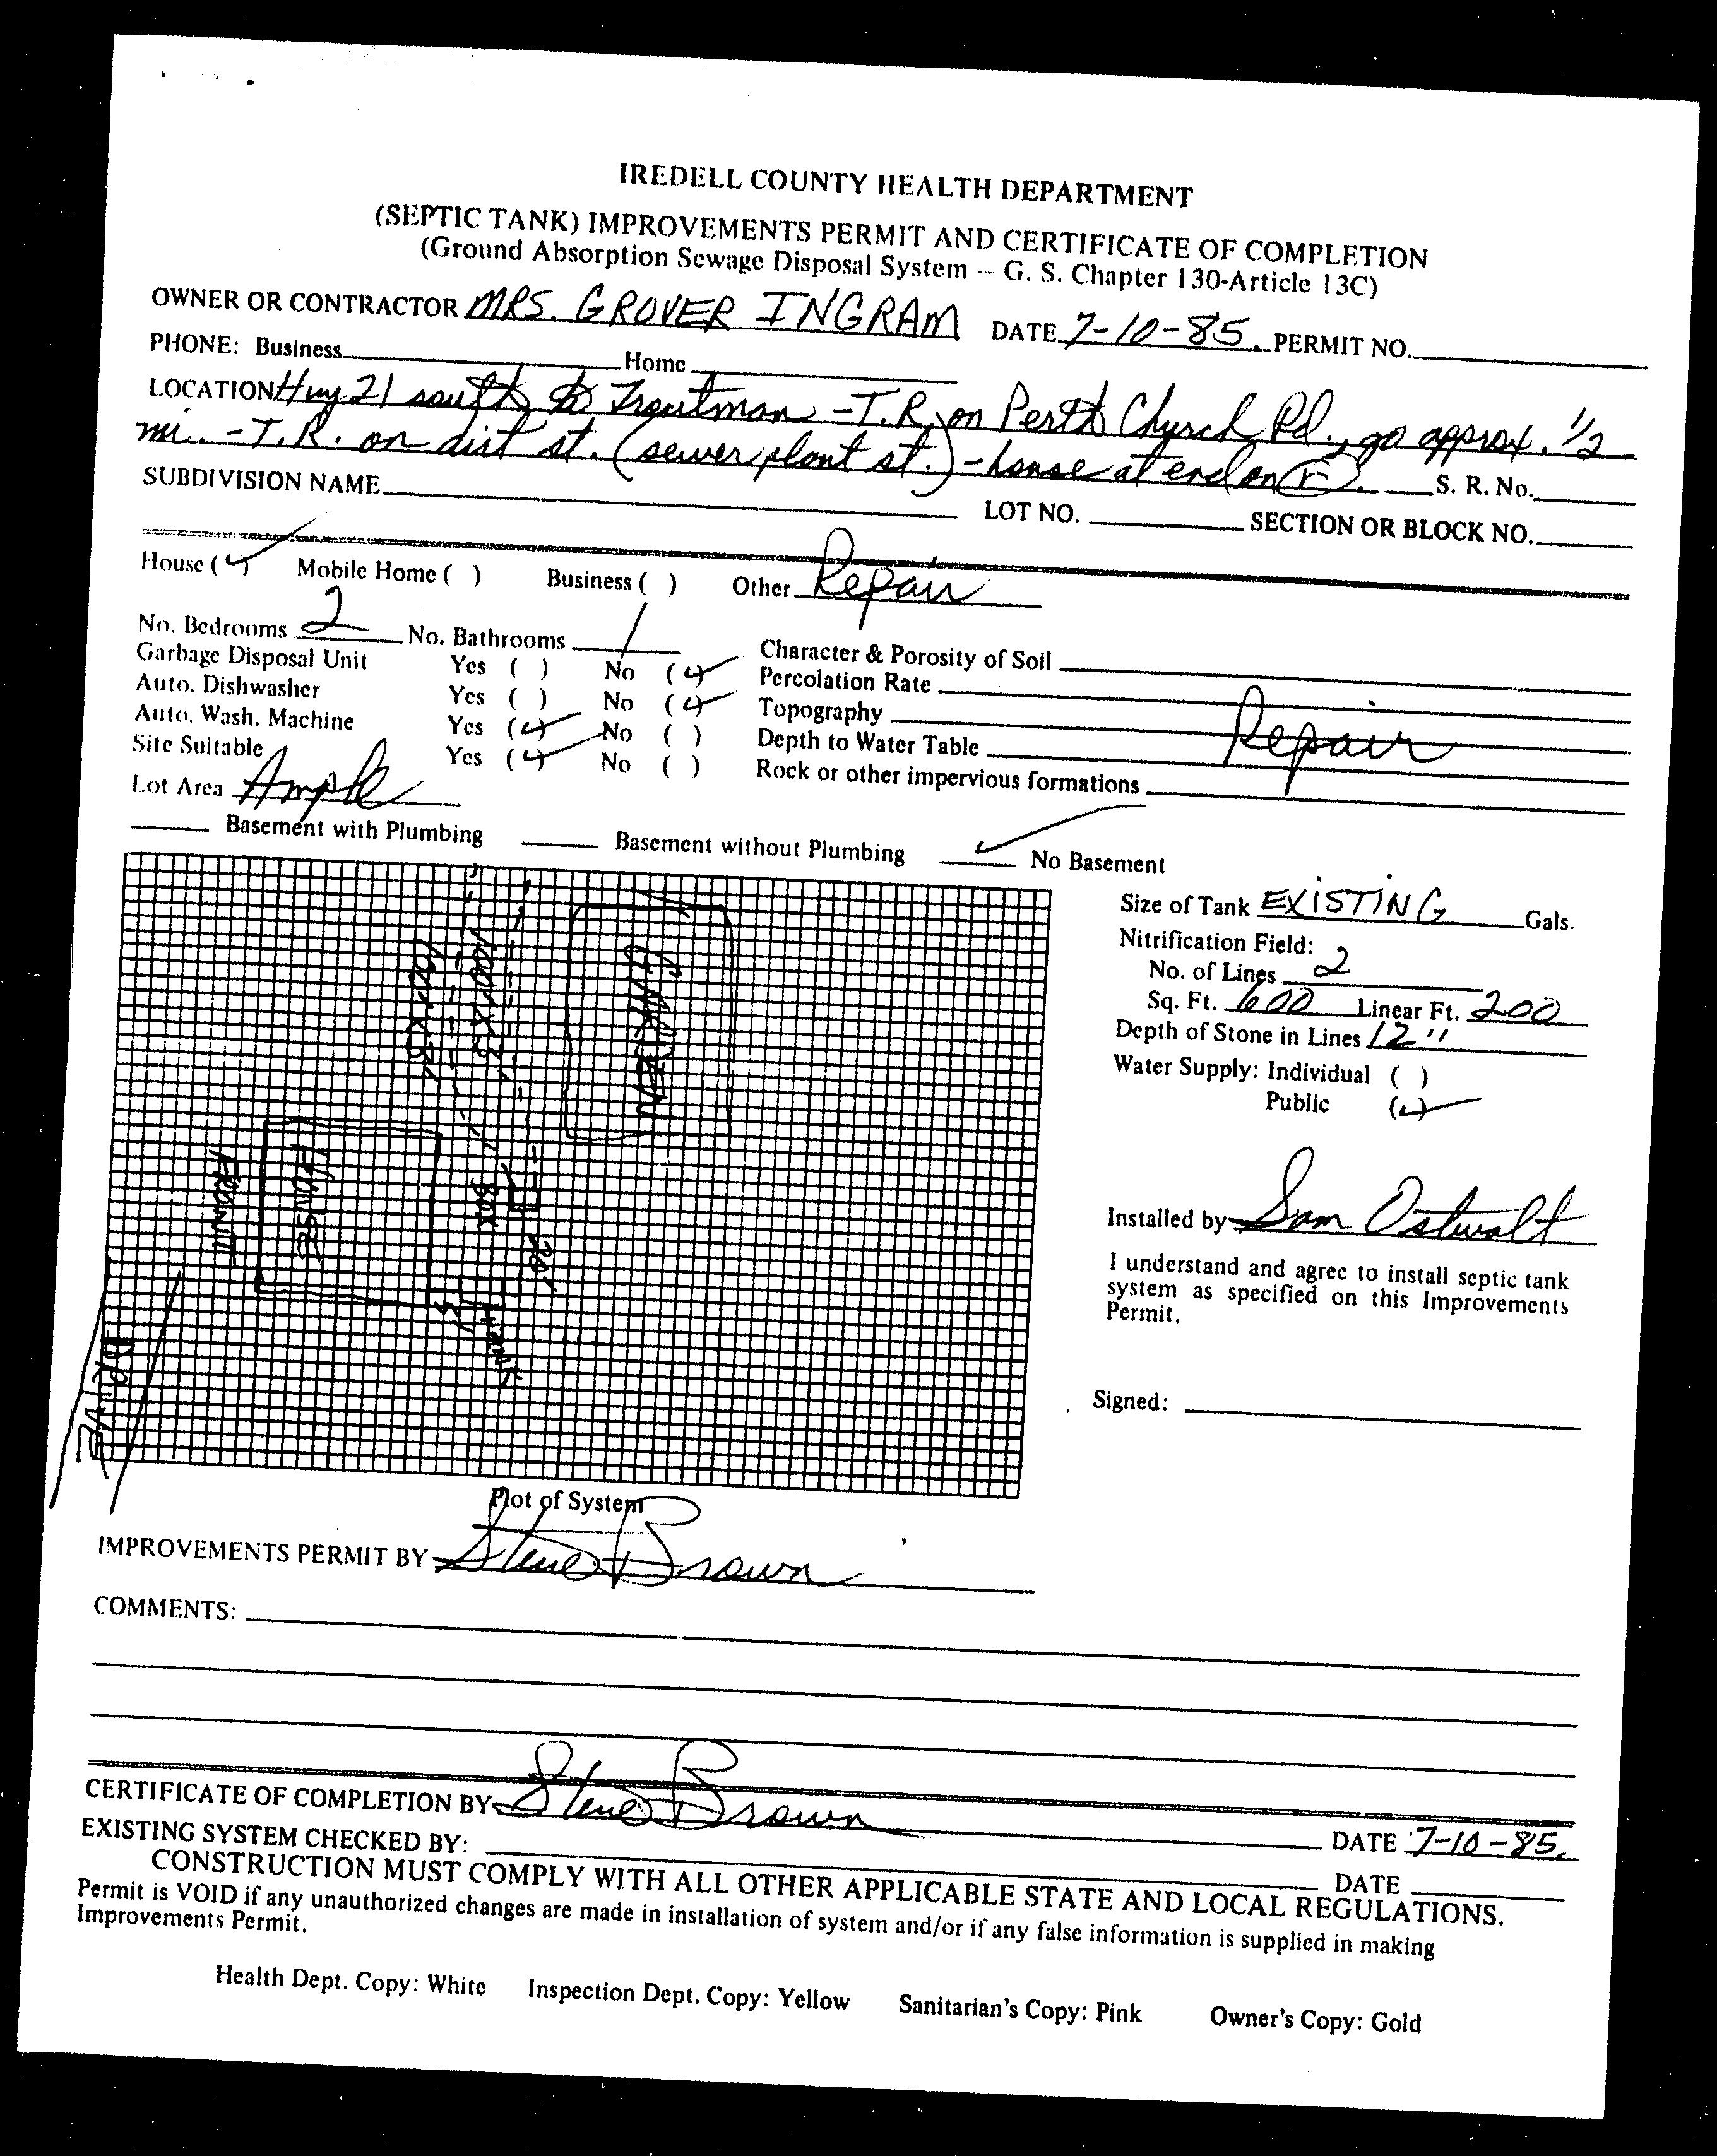 IREDELL COUNTY HEALTH DEPARTMENT
(SEPTIC TANK) IMPROVEMENTS PERMIT AND CERTIFICATE OF COMPLETION
(Ground Absorption Sewage Disposal System -- G. S. Chapter 130-Article 13C)
OWNER OR CONTRACTOR MRS. GROVER INGRAM DATE 7-10-85. PERMIT NO.
PHONE: Business Home
LOCATION Hwy 21 south to Troutman - T.R. on Perth Church Rd., go approx. 1/2
mi. - T.R. on dirt st. (sewer plant st.) - house at end on r. S. R. No.
SUBDIVISION NAME LOT NO. SECTION OR BLOCK NO.
House (✓) Mobile Home ( ) Business ( ) Other Repair
No. Bedrooms 2 No. Bathrooms 1 Character & Porosity of Soil
Garbage Disposal Unit Yes ( ) No (✓) Percolation Rate
Auto. Dishwasher Yes ( ) No (✓) Topography Repair
Auto. Wash. Machine Yes (✓) No ( ) Depth to Water Table
Site Suitable Yes (✓) No ( ) Rock or other impervious formations
Lot Area Ample
Basement with Plumbing Basement without Plumbing ✓ No Basement
Size of Tank EXISTING Gals.
Nitrification Field:
No. of Lines 2
Sq. Ft. 600 Linear Ft. 200
Depth of Stone in Lines 12"
Water Supply: Individual ( )
Public (✓)
GARDEN
100' x 3'
100' x 3'
BOX
20'
HOUSE
FRONT
5'
TANK
DRIVE
Installed by Sam Ostwalt
I understand and agree to install septic tank
system as specified on this Improvements
Permit.
Signed:
Plot of System
IMPROVEMENTS PERMIT BY Steve Brown
COMMENTS:
CERTIFICATE OF COMPLETION BY Steve Brown DATE 7-10-85.
EXISTING SYSTEM CHECKED BY: DATE
CONSTRUCTION MUST COMPLY WITH ALL OTHER APPLICABLE STATE AND LOCAL REGULATIONS.
Permit is VOID if any unauthorized changes are made in installation of system and/or if any false information is supplied in making
Improvements Permit.
Health Dept. Copy: White Inspection Dept. Copy: Yellow Sanitarian's Copy: Pink Owner's Copy: Gold